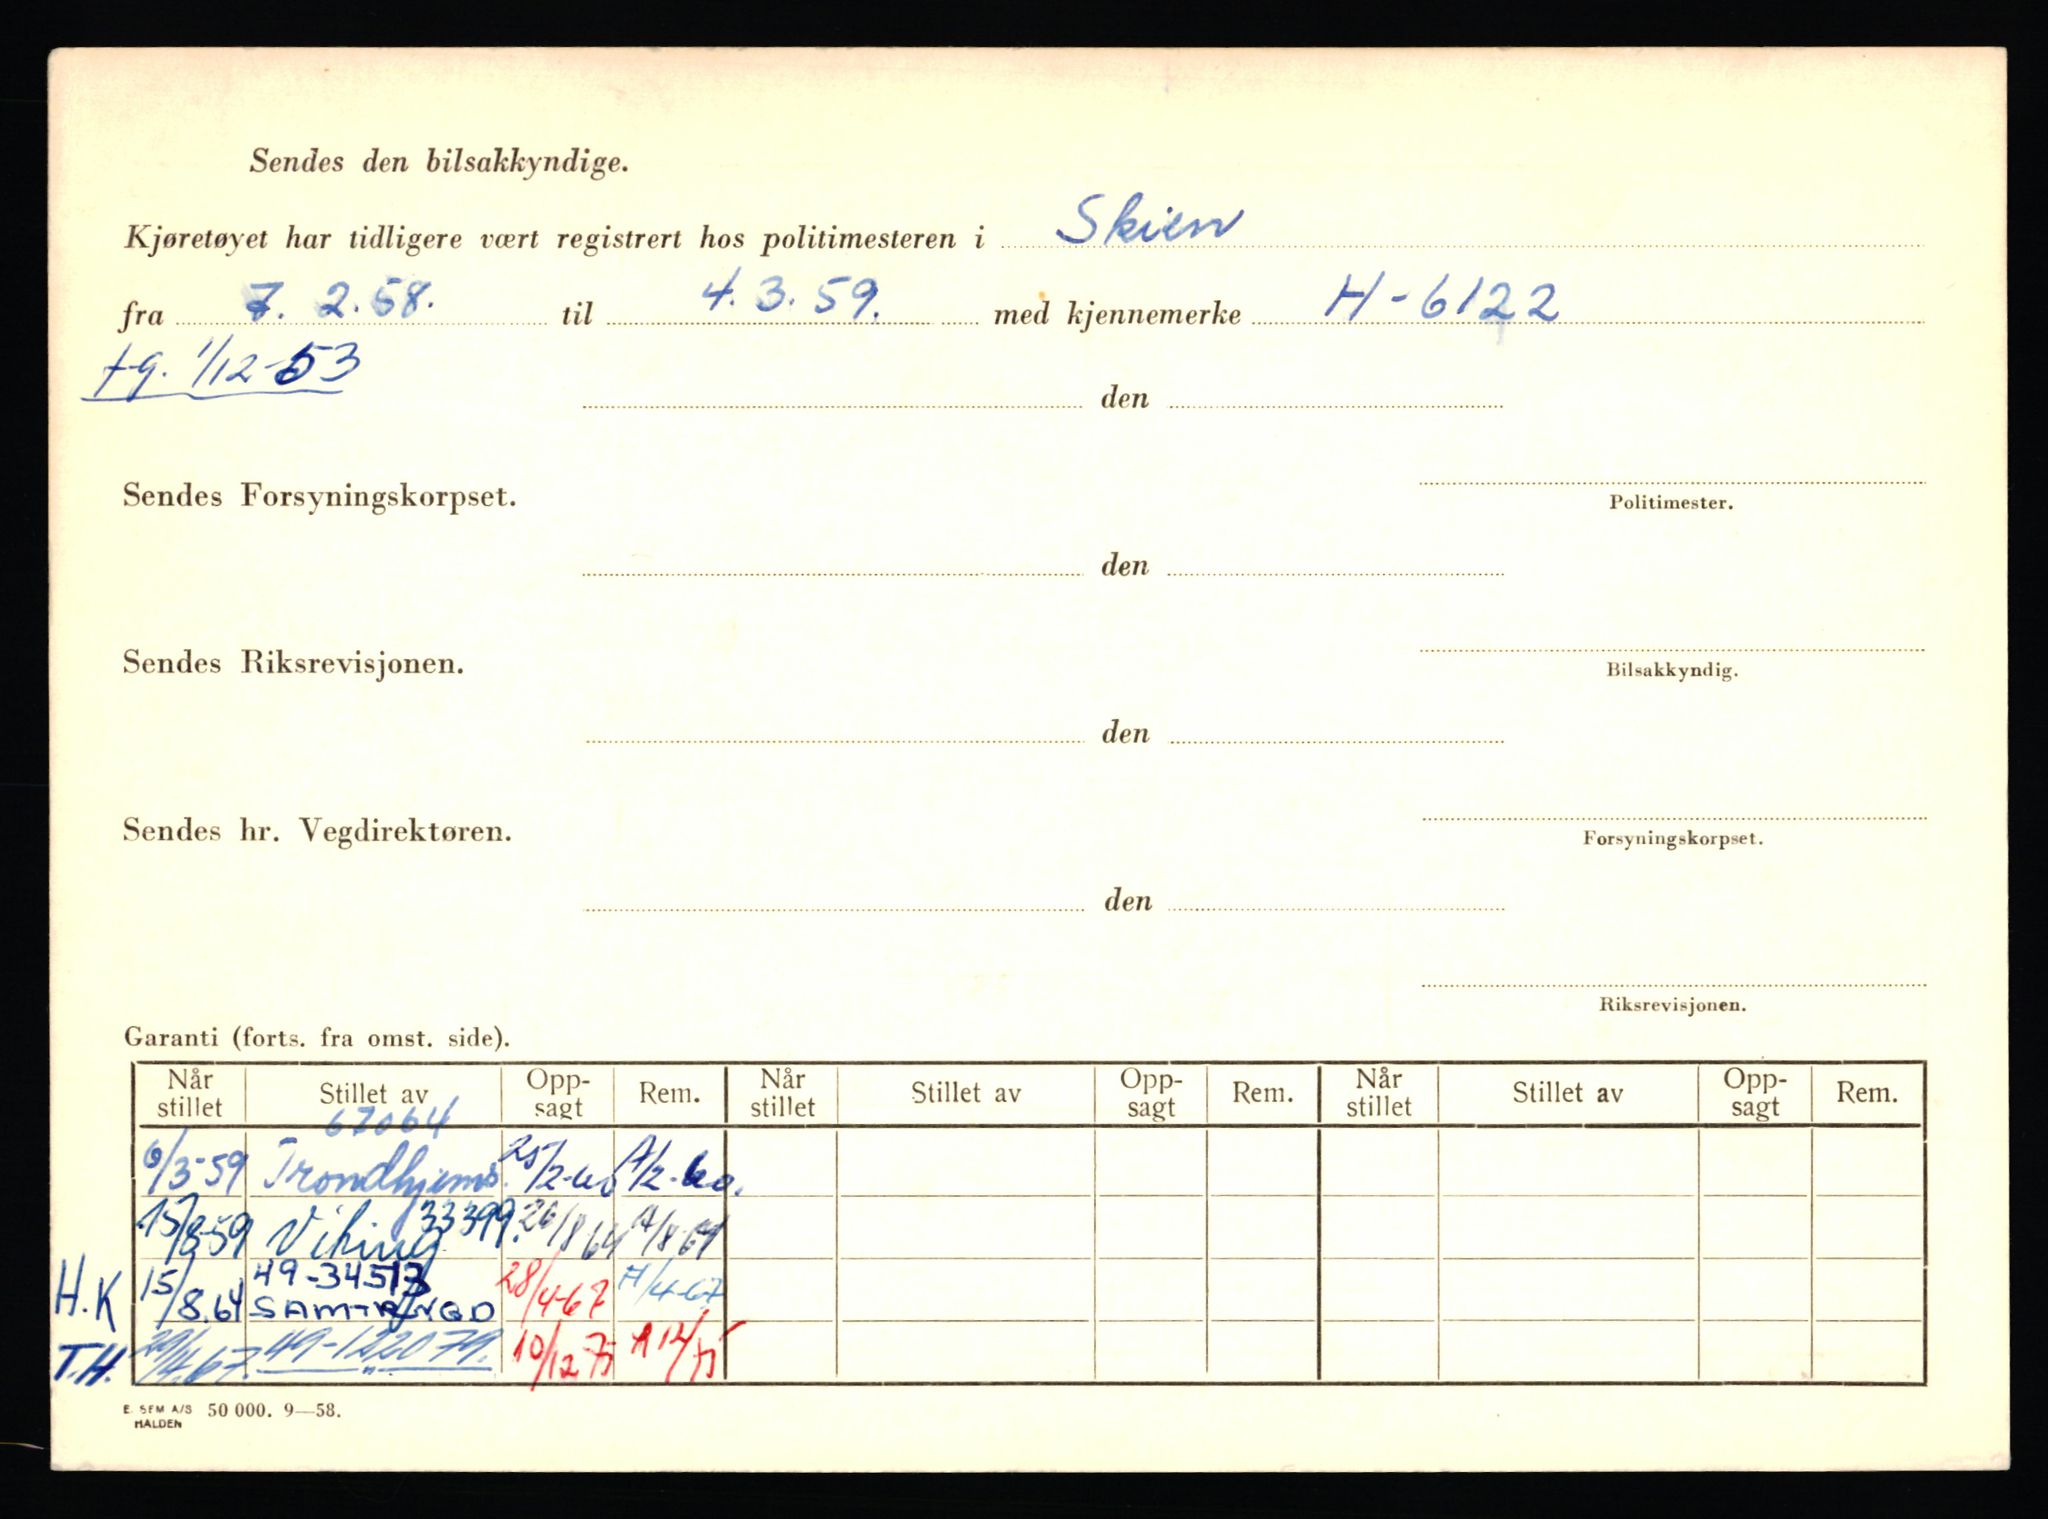 Sendes den bilsakkyndige.
Kjøretøyet har tidligere vært registrert hos politimesteren i Skien
fra 7. 2. 58. til 4. 3. 59. med kjennemerke H-6122
1/12-53
den
Sendes Forsyningskorpset.
Politimester.
den
Sendes Riksrevisjonen.
Bilsakkyndig.
den
Sendes hr. Vegdirektøren.
Forsyningskorpset.
den
Riksrevisjonen.
Garanti (forts. fra omst. side).
Når stillet Stillet av Opp-sagt Rem. Når stillet Stillet av Opp-sagt Rem. Når stillet Stillet av Opp-sagt Rem.
67064
6/3-59 Trondhjems.
15/8-59 Viking 33399. 26/8 64
H.K 15/8.64 49-34513 28/4-67
T.H. 29/4.67. 49-122079. 10/12 75
E. SEM A/S HALDEN 50 000. 9—58.